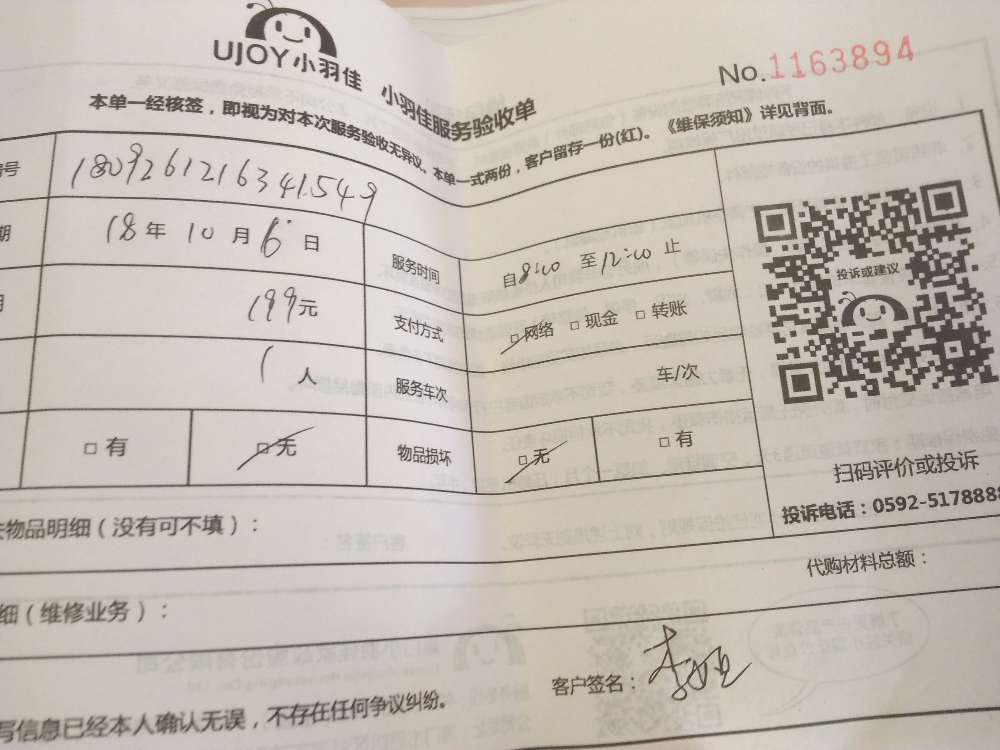 UJOY小羽佳 小羽佳服务验收单
No.1163894
本单一经核签，即视为对本次服务验收无异议。本单一式两份，客户留存一份(红)。《维保须知》详见背面。
号 180926121634​1549
期 18年10月6日 服务时间 自8:00至12:00止
199元 支付方式 □网络 □现金 □转账
1人 服务车次 车/次
□有 □无 物品损坏 □无 □有
投诉或建议
扫码评价或投诉
投诉电话：0592-5178888
物品明细（没有可不填）：
代购材料总额：
细（维修业务）：
客户签名：
写信息已经本人确认无误，不存在任何争议纠纷。